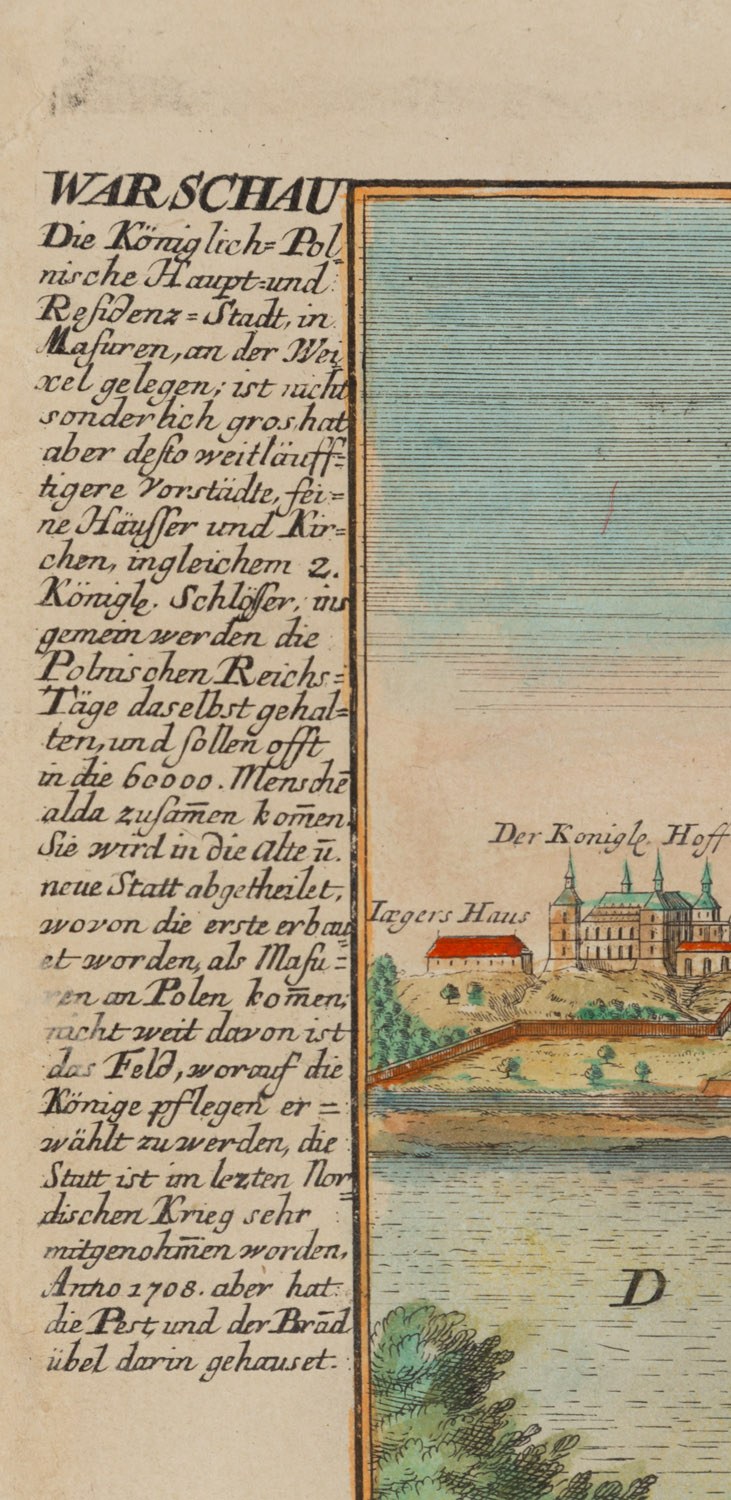 WARSCHAU
Die Königlich=Pol=
nische Haupt=und
Reſidenz=Stadt, in
Maſuren, an der Wei
xel gelegen, ist nicht
sonderlich gros hat
aber deſto weitläuff=
tigere Vorstädte, fei=
ne Häuſſer und Kir=
chen, ingleichem 2.
Königlᵉ. Schlöſſer, ins
gemein werden die
Polnischen Reichs=
Täge daselbst gehal=
ten, und ſollen offt
in die 60000. Menschē
alda zuſam̅en kom̅en.
Sie wird in die Alte ū.
neue Statt abgetheilet,
wovon die erste erbau
et worden, als Maſu=
ren an Polen kom̅en,
nicht weit davon ist
das Feld, worauf die
Könige pflegen er=
wählt zu werden, die
Statt ist im lezten Nor
dischen Krieg sehr
mitgenohm̅en worden,
Anno 1708. aber hat
die Pest und der Brād
übel darin gehauset.
Der Konigle. Hoff
Iægers Haus
D